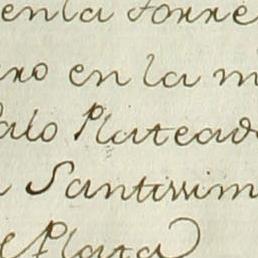 en la Torre
ro en la m
alo Platead
Santissim
Plata